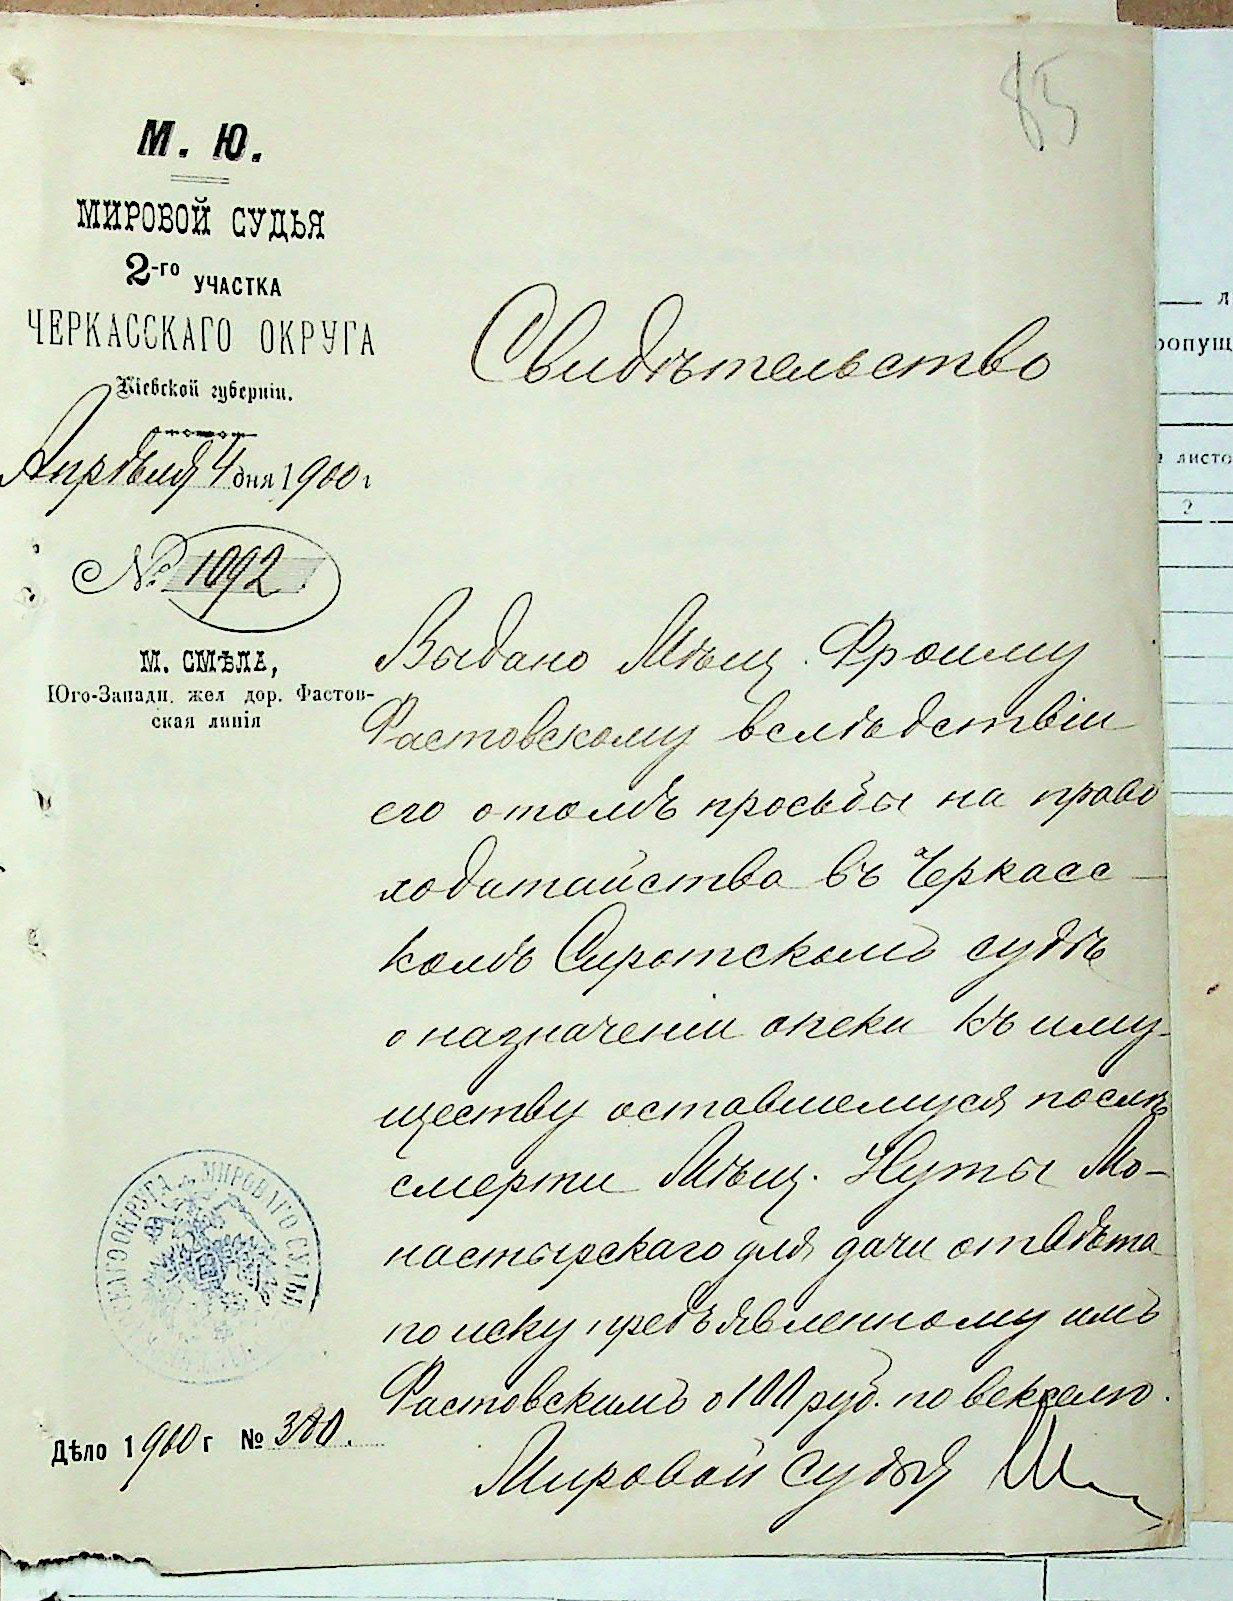 85
М. Ю.
МИРОВОЙ СУДЬЯ
2-го УЧАСТКА
ЧЕРКАССКАГО ОКРУГА
Кіевской губерніи.
Апрѣля 4 дня 1900 г
№ 1092
М. СМѢЛА,
Юго-Западн. жел дор. Фастов-
ская линія
Свидѣтельство
Выдано Мѣщ. Фроиму
Фастовскому вслѣдствіи
его о томъ просьбы на право
ходатайства въ Черкасс-
комъ Сиротскомъ судѣ
о назначеніи опеки къ иму-
ществу оставшемуся послѣ
смерти Мѣщ. Нуты Мо-
настырскаго для дачи отвѣта
по иску предъявленному имъ
Фастовскимъ о 100 руб. по векселю.
Мировой судья
ОКРУГА МИРОВАГО СУДЬИ
Дѣло 1900 г № 380.
л
опущ
листо
?